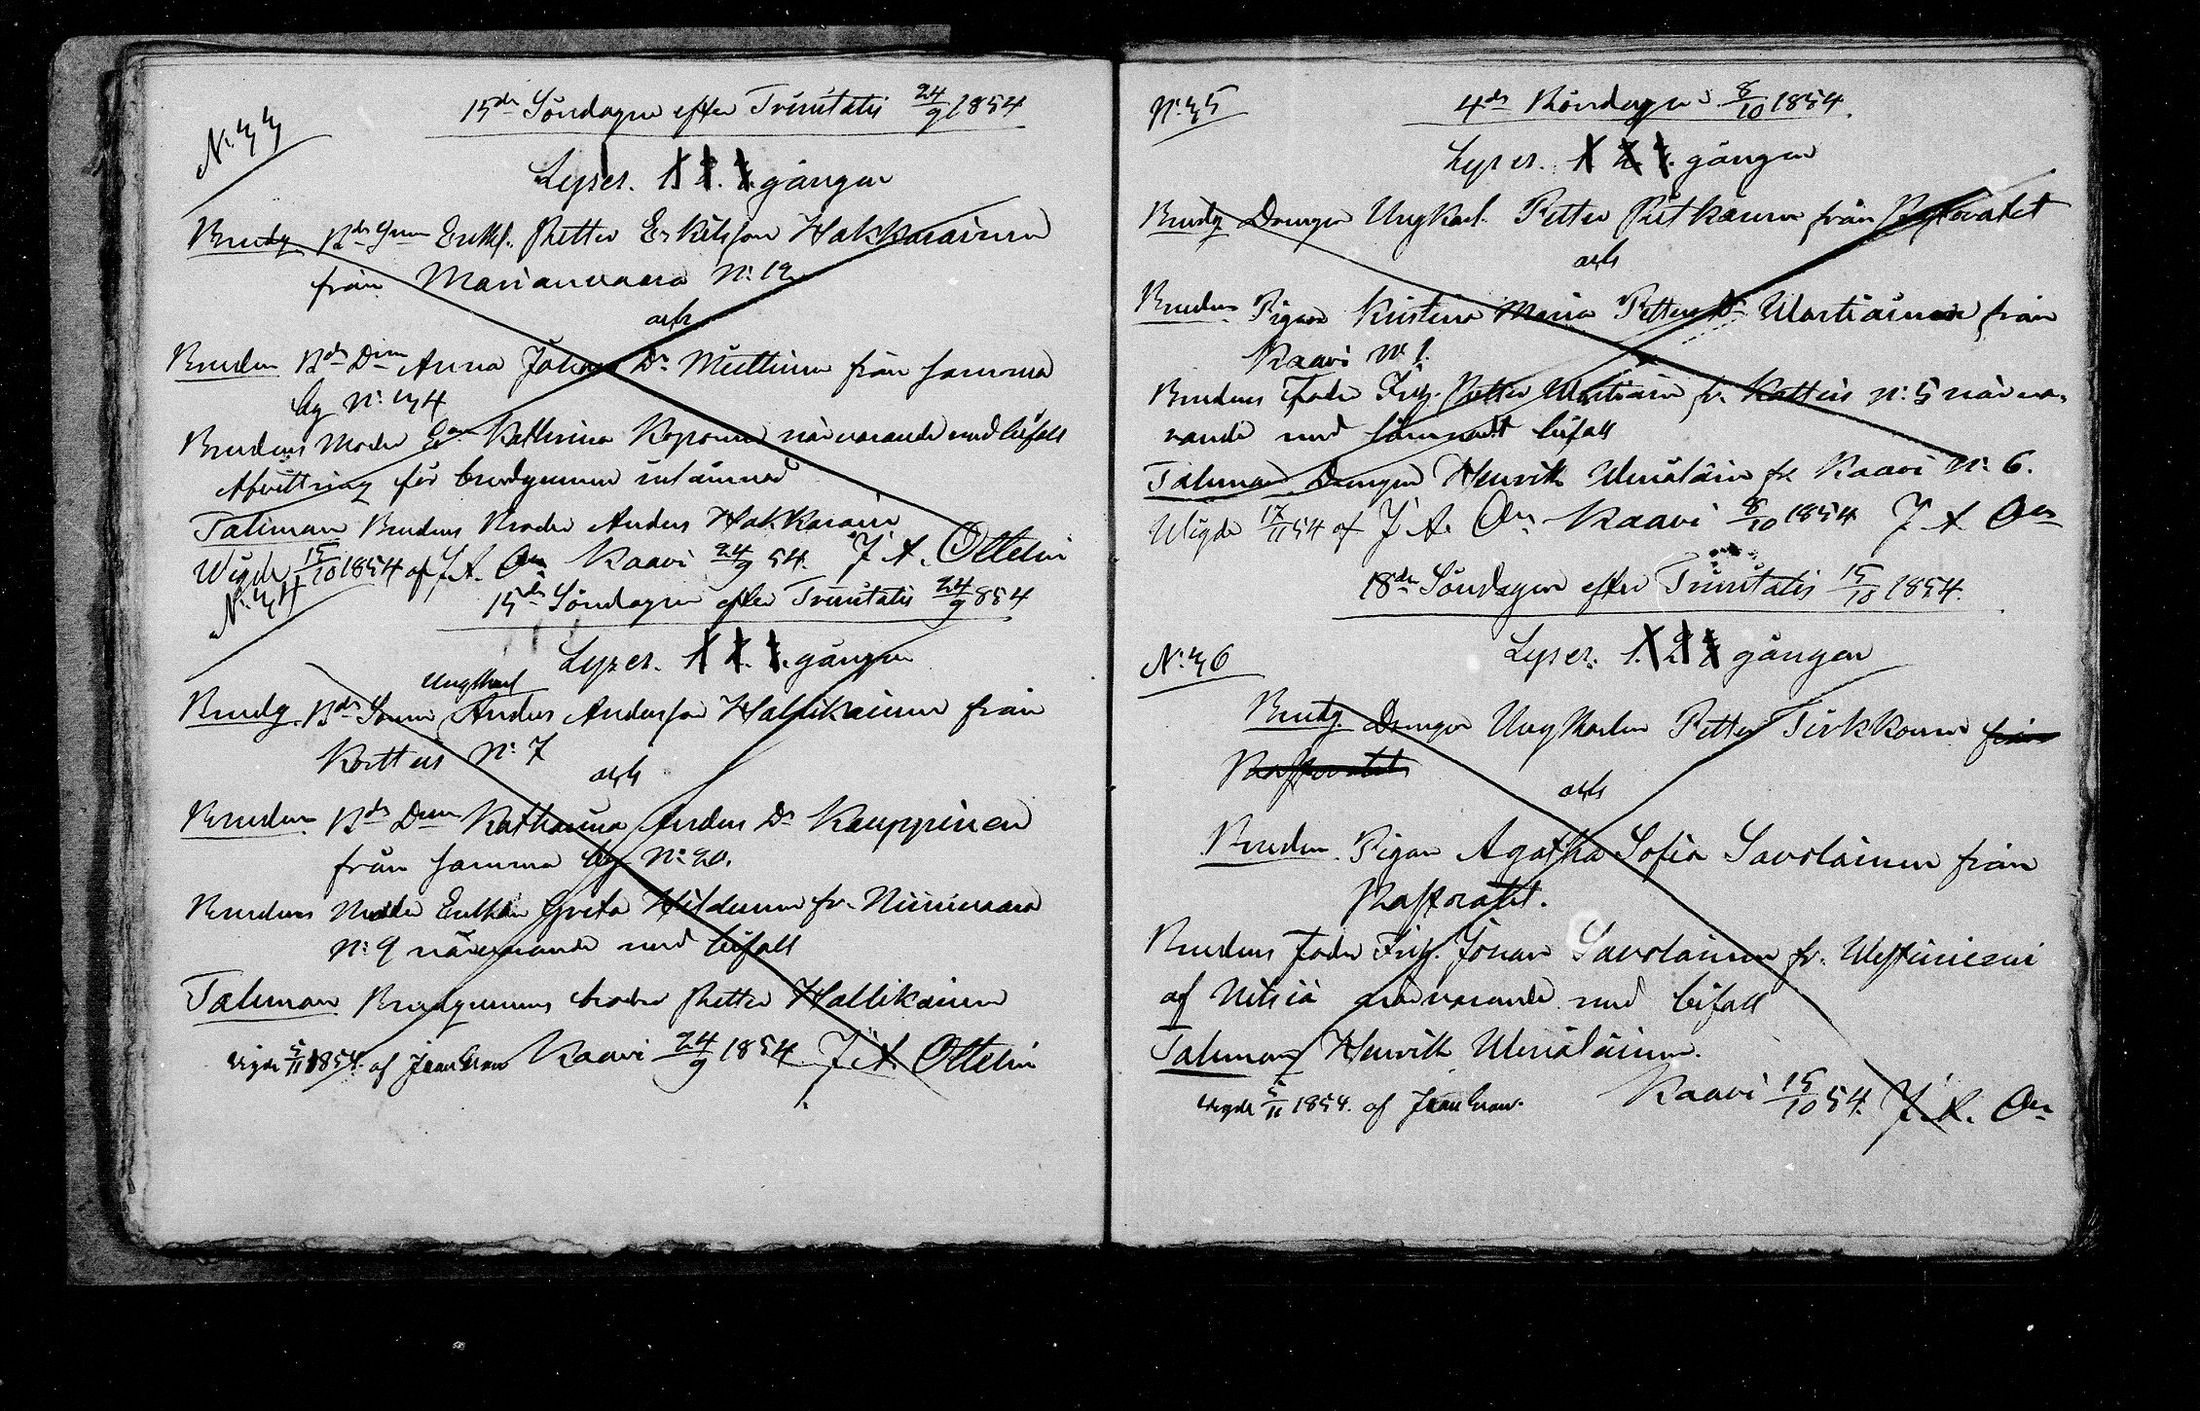 N:33
15de Söndagen efter Trinitatis 24/9 1854
Lyses. 1. 2. 3. gången
Brudg. Bde Sonen Enkl. Petter Eskilsson Hakkarainen
från Marianvaara N:12
och
Bruden Bde Dtrn Anna Johans Dr Miettinen från samma
by N: 34
Brudens Moder Ea Katharina Koponen närvarande med bifall
Afvittring för brudgummen inlämnad
Talman Brudens Broder Anders Hakkarain
Wigde 15/10 1854 af J. A. On Kaavi 24/9 54. J. A. Ottelin
N:34
15de Söndagen efter Trinitatis 24/9 854
Lyses. 1. 2. 3. gången
Brudg. Bde Sonen Ungkarl Anders Andersson Hallikainen från
Kortteis N:7
och
Bruden Bde Dtrn Katharina Anders Dr Kauppinen
från samma by N:20.
Brudens Moder Enkan Greta Hildunen fr. Niinivaara
N:9 närvarande med bifall
Talman Brudgummens broder Petter Hallikainen
Vigde 5/11 1854. af Kaavi 24/9 1854 J. A. Ottelin
N:35
8/10 1854.
Lyses. 1 2. 3. gången
Brudg Drengen Ungkarl. Petter Pitkänen från
och
Bruden Pigan Kristina Maria Petters Dr Martiainen från
Kaavi N:1.
Brudens Fader Petter Martiain fr. Kortteis N:5 närva-
rande med lämnadt bifall
Talman Drengen Henrik fr. Kaavi N:6.
Wigde 17/11 54 af J. A. On Kaavi 8/10 1854 J A On
18de Söndagen efter Trinitatis 15/10 1854.
N:36
Lyses: 1. 2 3 gången
Brudg. Drengen Ungkarlen Petter Tirkkonen från
och
Bruden. Pigan Agatha Sofia Savolainen från
Brudens Fader Johan Savolainen fr.
af Nilsiä närvarande med bifall
Talman Henrik
Vigde 5/11 1854. af Kaavi 15/10 54. J. A. On